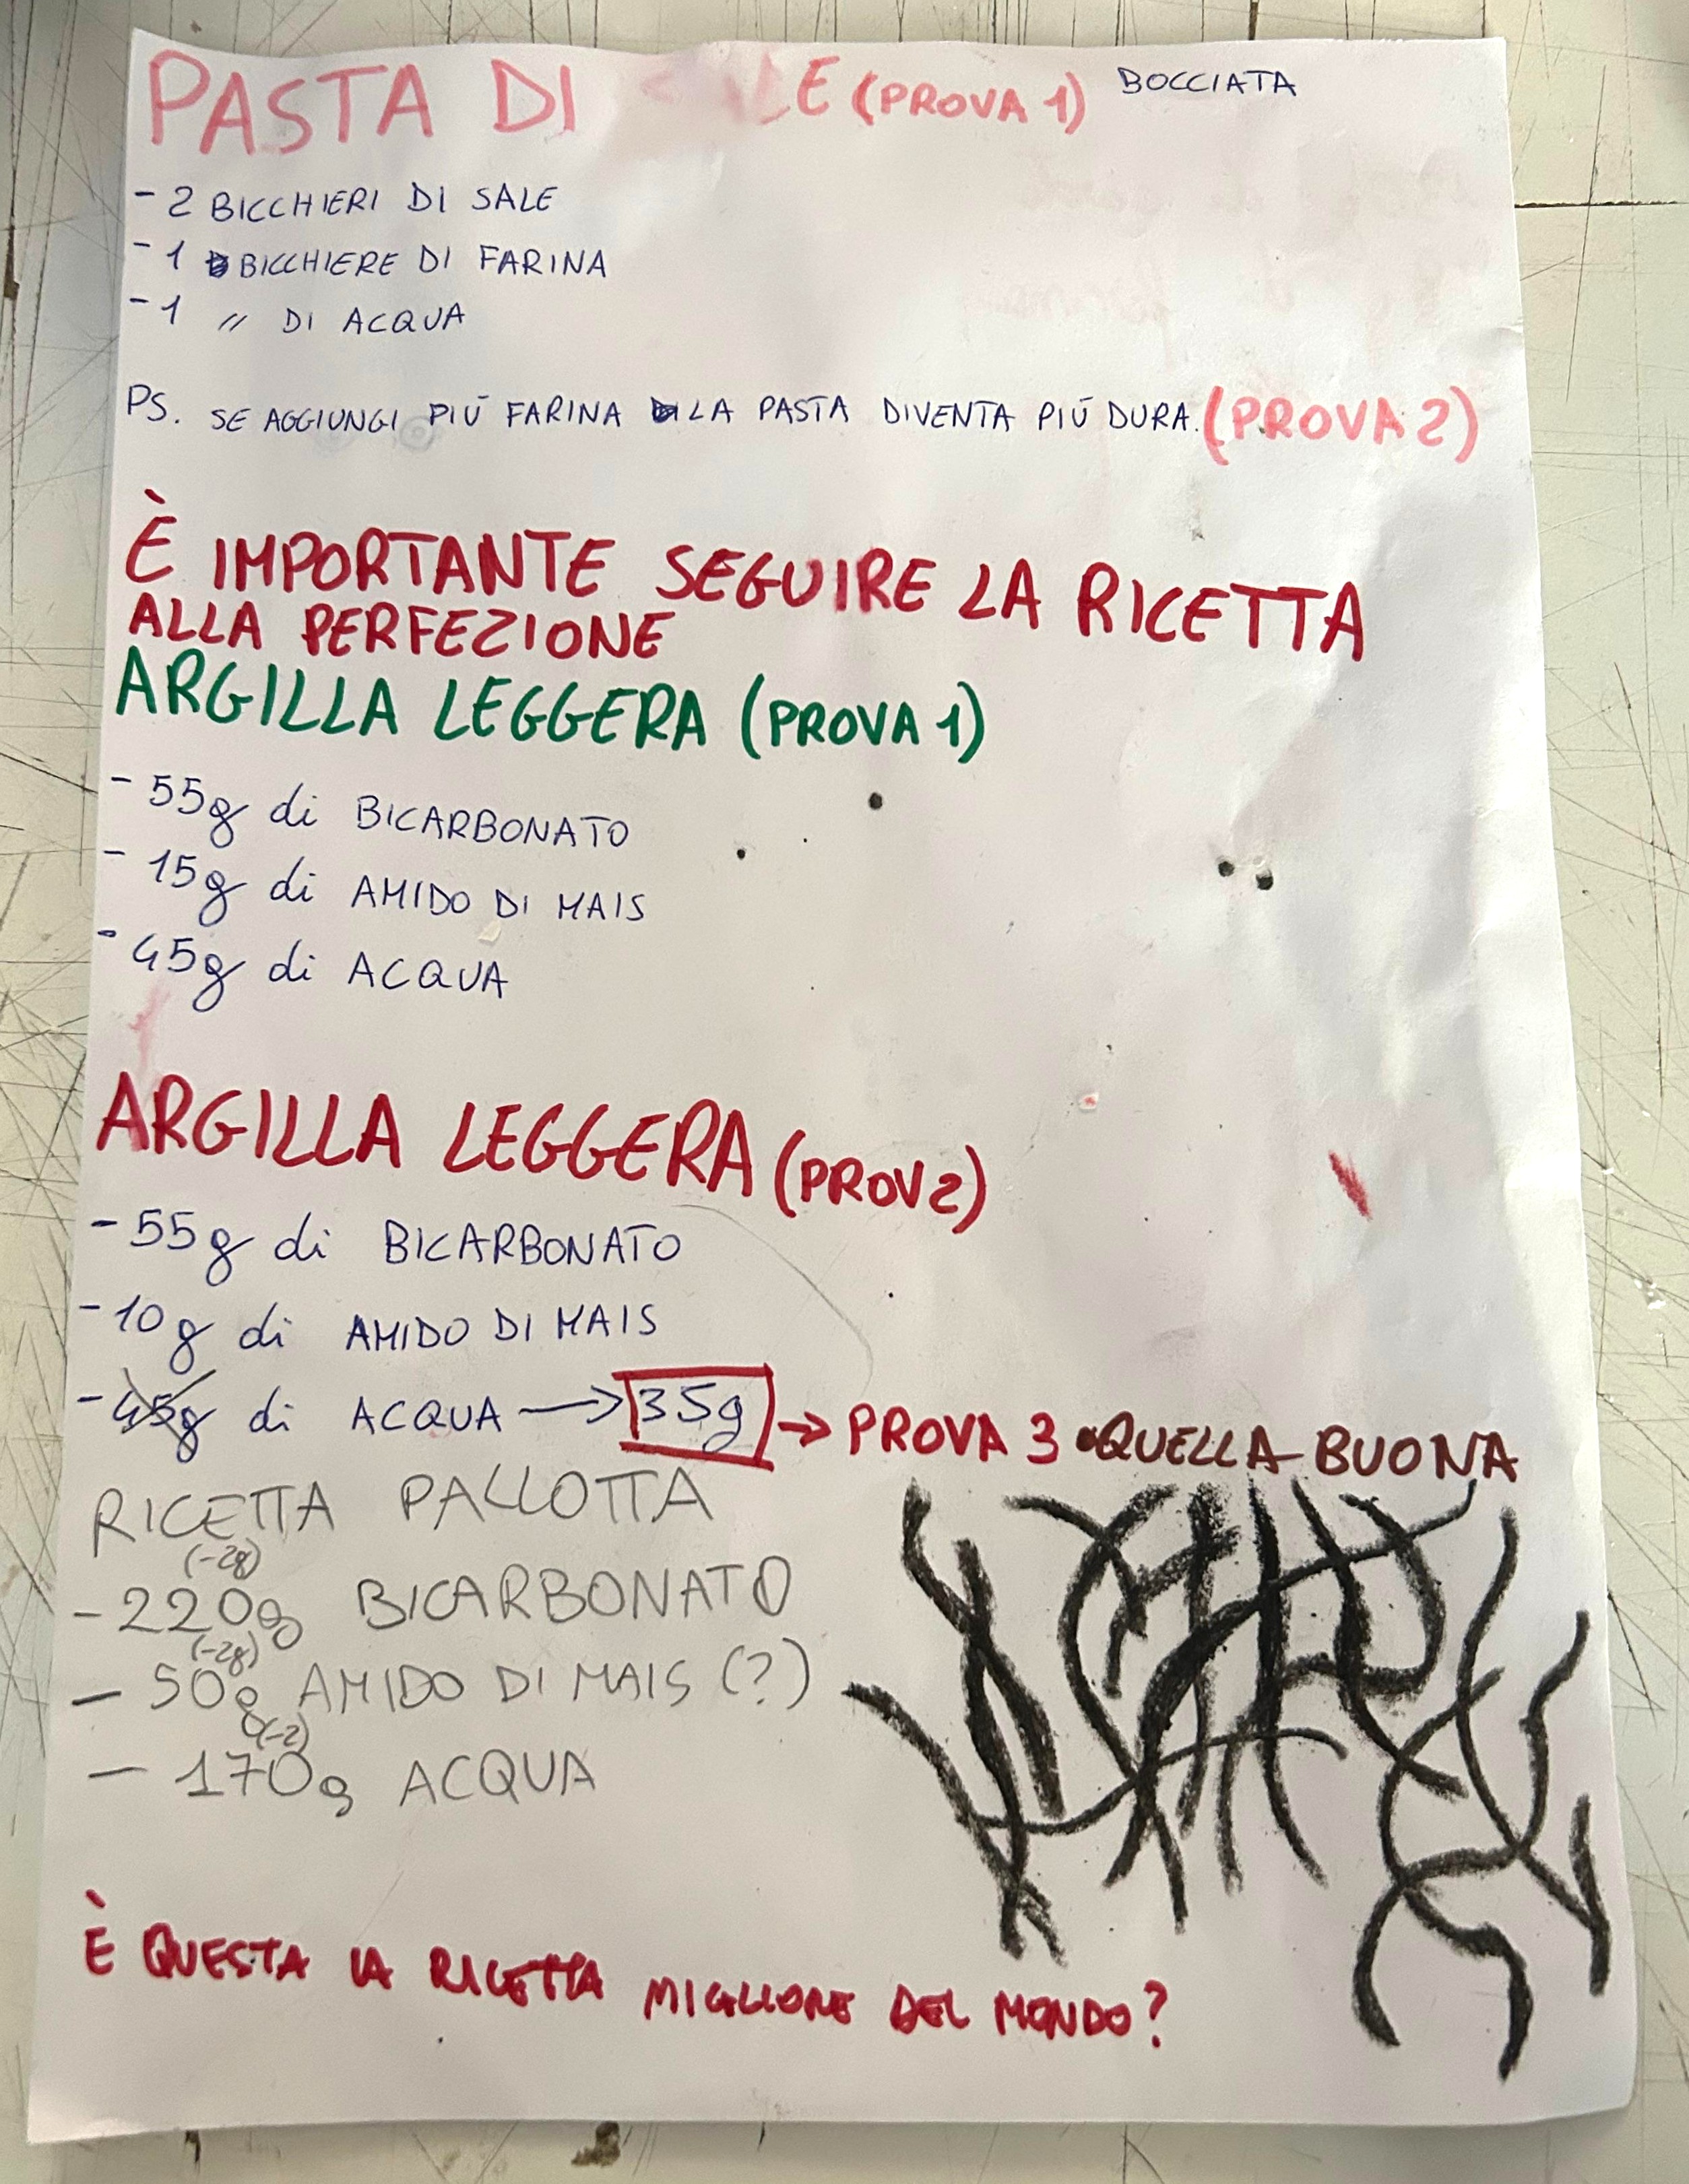 PASTA DI SALE (PROVA 1) BOCCIATA
- 2 BICCHIERI DI SALE
- 1 BICCHIERE DI FARINA
- 1 " DI ACQUA
PS. SE AGGIUNGI PIÙ FARINA LA PASTA DIVENTA PIÙ DURA. (PROVA 2)
È IMPORTANTE SEGUIRE LA RICETTA
ALLA PERFEZIONE
ARGILLA LEGGERA (PROVA 1)
- 55g di BICARBONATO
- 15g di AMIDO DI MAIS
- 45g di ACQUA
ARGILLA LEGGERA (PROV2)
- 55g di BICARBONATO
- 10g di AMIDO DI MAIS
- 45g di ACQUA → 35g → PROVA 3 • QUELLA BUONA
RICETTA PALLOTTA
(-2g)
- 220g BICARBONATO
(-2g)
- 50g AMIDO DI MAIS (?)
(-2)
- 170g ACQUA
È QUESTA LA RICETTA MIGLIORE DEL MONDO?